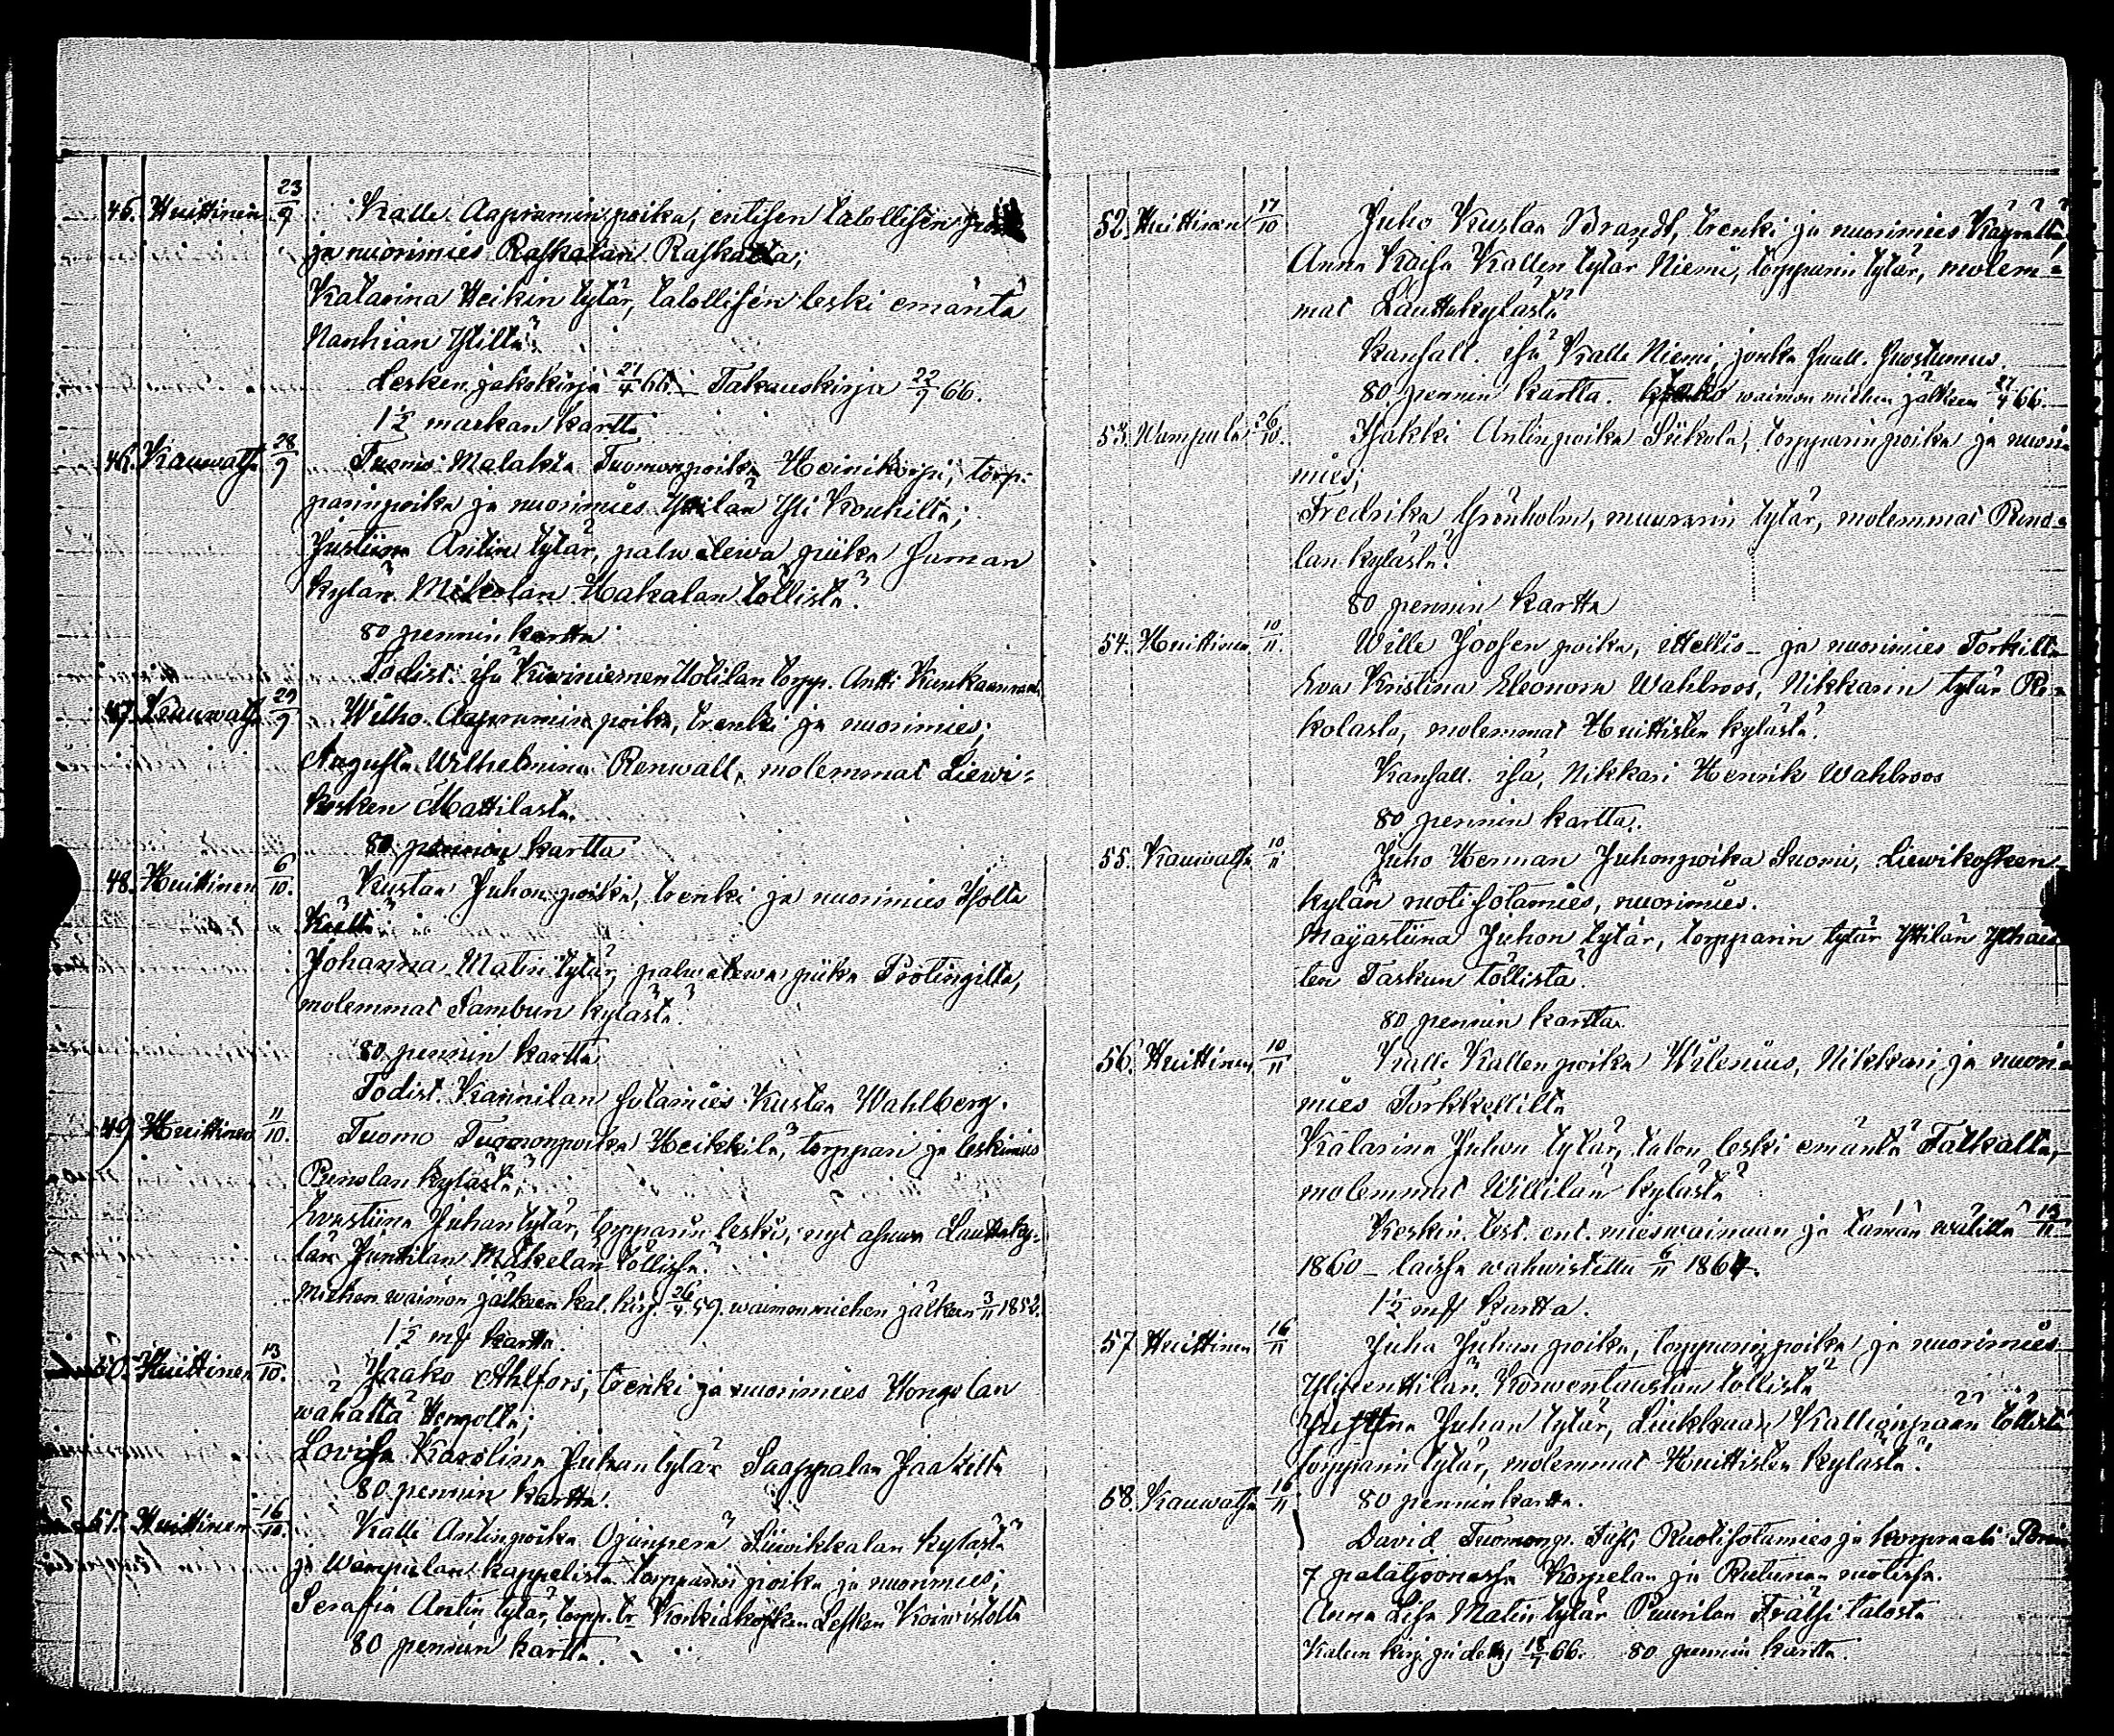 45. Huittinen 23/9 Kalle Aapramin poika, entisen talollisen
ja nuorimies Raskalan Raskalta;
Katarina Heikin tytär, talollisen leski emäntä
Nanhian Yliltä.
Lesken jakokirja 21/4 66. Takauskirja 22/9 66.
1½ markan kartta
46. Kauwatsa 28/9 Tuomo Malakia Tuomonpoika Heinikorpi, torp-
parinpoika ja nuorimies Yttilän Yli Kouhilta;
Justiina Antin tytär, palwelewa piika Suman
kylän Mikolan Hakalan töllistä.
80 pennin kartta
Todist. isä Kiwiniemen Uotilan torpp. Antti
47. Kauwatsa 29/9 Wilho Aapramin poika, trenki ja nuorimies;
Augusta Wilhelmina Renwall, molemmat Liewi-
kosken Mattilasta.
80 pennin kartta
48. Huittinen 6/10. Kustaa Juhon poika, trenki ja nuorimies Isolta
Johanna Matin tytär, palwelewa piika Protingilta,
molemmat Sambun kylästä.
80 pennin kartta
Todist. Kannilan sotamies Kustaa Wahlberg.
49. Huittinen 11/10. Tuomo Tuomonpoika Heikkilä, torppari ja leskimies
kylästä;
Evastiina Juhan tytär, torpparin leski, nyt asuwa Lauttaky-
län Junttilan Mäkelän töllissä.
Miehen waimon jälkeen kal. kirj. 26/4 59. waimon miehen jälkeen 3/11 1852.
1½ mk kartta.
50. Huittinen 13/10. Jaako Ahlfors, trenki ja nuorimies Hongolan
Lovisa Karolina Juhan tytär Saappalan
80 pennin kartta.
51. Huittinen 16/10. Kalle Antinpoika Ojanperä Liiwikkalan kylästä
ja Wampulan kappelista torpparin poika ja nuorimies;
Serafia Antin tytär, torpp. tr Korkiakosken Lesken Koiwistolta
80 pennin kartta.
52. Huittinen 17/10 Juho Kustaa Brandt, trenki ja nuorimies
Anna Kaisa Kallen tytär Niemi, torpparin tytär, molem-
mat Lauttakylästä
Kansall. isä Kalle Niemi, jonka suull. suostumus.
80 pennin kartta. waimon miehen jälkeen 27/4 66.
53. Wampula 26/10. Isakki Antinpoika Sükola, torpparinpoika ja nuori-
mies;
Fredrika Grönholm, muurarin tytär, molemmat
lan kylästä.
80 pennin kartta
54. Huittinen 10/11. Wille Joosen poika, itsellis- ja nuorimies Torkilta
Eva Kristina Eleonora Wahlroos, Nikkarin tytär Re-
kolasta, molemmat Huittisten kylästä.
Kansall. isä, Nikkari Henrik Wahlroos
80 pennin kartta.
55. Kauwatsa 10/11 Juho Herman Juhonpoika Suomi, Liewikosken
kylän ruotisotamies, nuorimies.
Majastiina Juhon tytär, torpparin tytär Yttilän
ten Taskun töllistä.
80 pennin kartta.
56. Huittinen 10/11 Kalle Kallen poika Wilenius, Nikkari ja nuori-
mies Torkkellilta
Katarina Juhon tytär, talon leski emäntä Tätkältä,
molemmat Willilän kylästä
Keskin. test. ent. mieswainaan ja tämän wälillä 13/11
1860 - laissa wahwistettu 6/11 1864.
1½ mk kartta.
57 Huittinen 16/11 Juha Juhan poika, torpparin poika ja nuorimies
Ylipenttilän Konwentaustan töllistä
Justina Juhan tytär, Liukkaan Kallionpään töllistä
torpparin tytär, molemmat Huittisten kylästä.
58. Kauwatsa 16/11 80 pennin kartta.
David Tuomonp. Tuff, Ruotisotamies ja korpraali Porin
7 pataljoonassa Korpelan ja Rutunan ruotissa.
Anna Lisa Matin tytär Puurilan Frälsi talosta
Kalun kirj. 18/7 66. 80 pennin kartta.